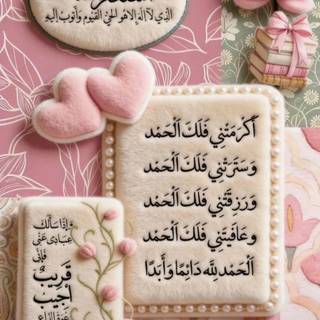 الذي لا إله إلا هو الحي القيوم وأتوب إليه
أَكْرَمْتَنِي فَلَكَ الْحَمْد
وَسَتَرْتَنِي فَلَكَ الْحَمْد
وَرَزَقْتَنِي فَلَكَ الْحَمْد
وعَافَيْتَنِي فَلَكَ الْحَمْد
الْحَمْدُ لِلّه دَائِمًا وَأَبَدًا
وَإِذَا سَأَلَكَ
عِبَادِي عَنِّي
فَإِنِّي
قَرِيبٌ
أُجِيبُ